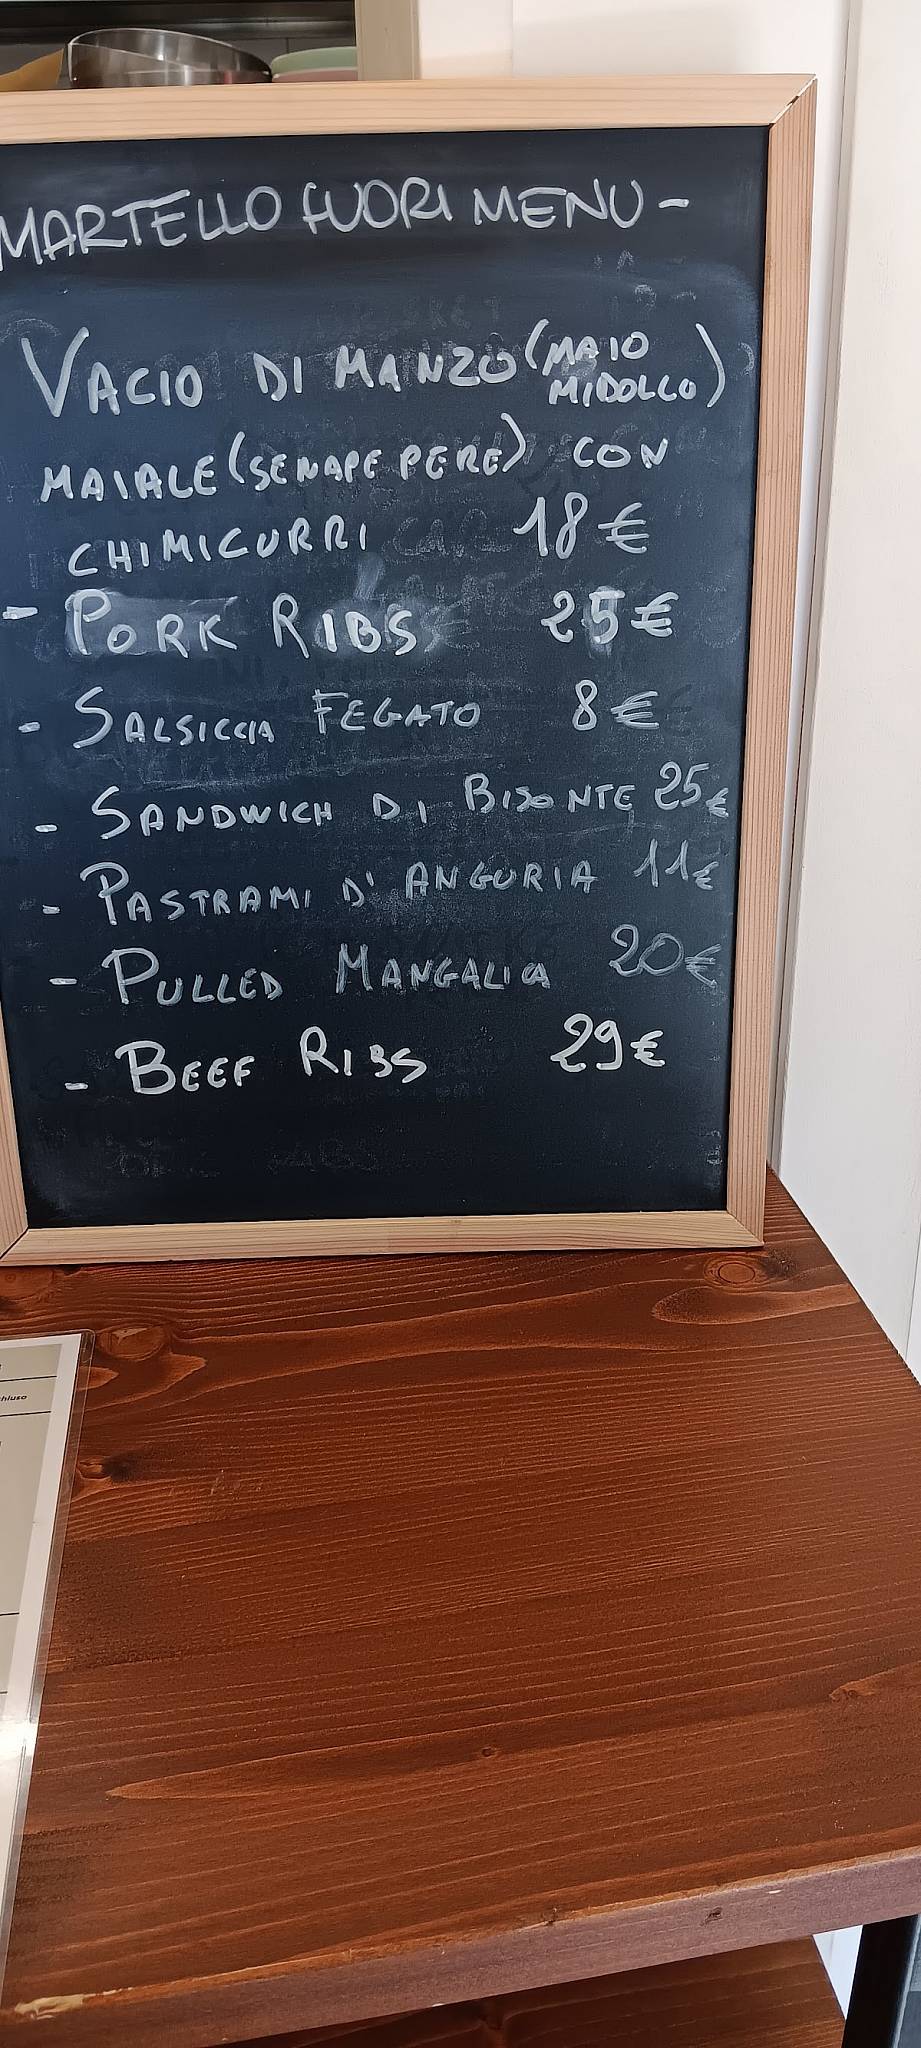 MARTELLO FUORI MENU -
VACIO DI MANZO (MAIO MIDOLLO)
MAIALE (SENAPE PERE) CON
CHIMICURRI 18 €
- PORK RIBS 25 €
- SALSICCIA FEGATO 8 €
- SANDWICH DI BISONTE 25 €
- PASTRAMI D'ANGURIA 11 €
- PULLED MANGALICA 20 €
- BEEF RIBS 29 €